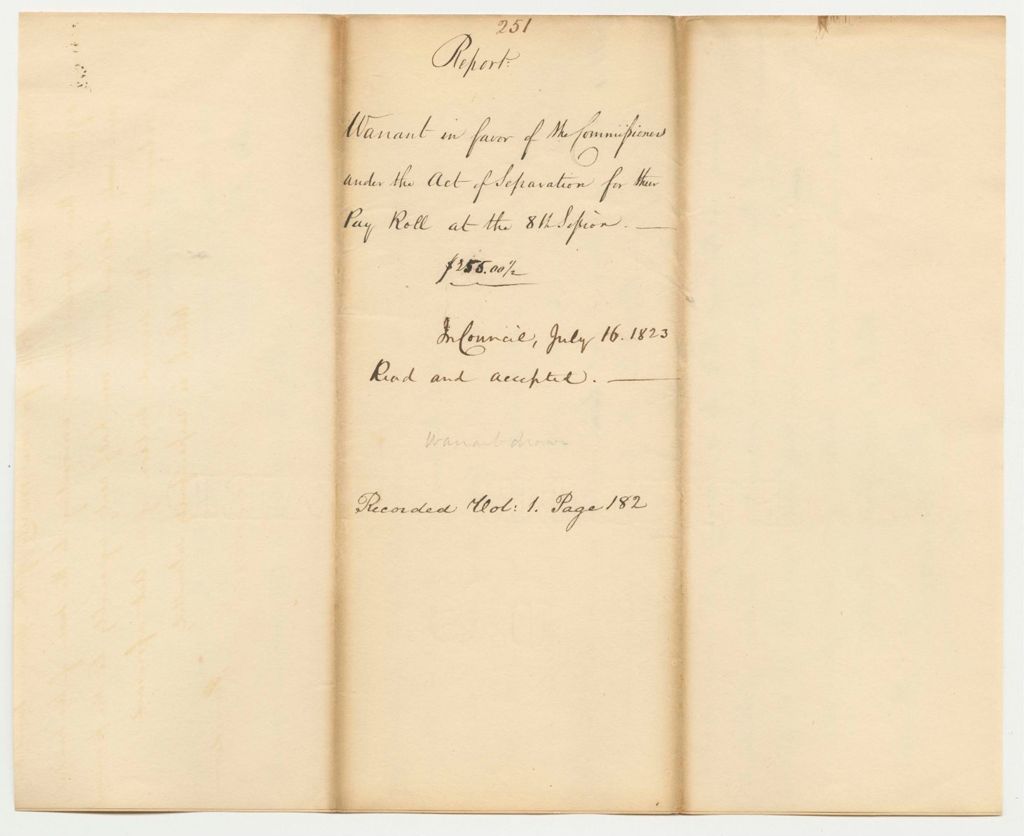 251
Report.
Warrant in favor of the Commissioners
under the Act of Separation for their
Pay Roll at the 8th Session. —
$255.00½
In Council, July 16. 1823
Read and accepted. —
Warrant drawn
Recorded Vol: 1. Page 182